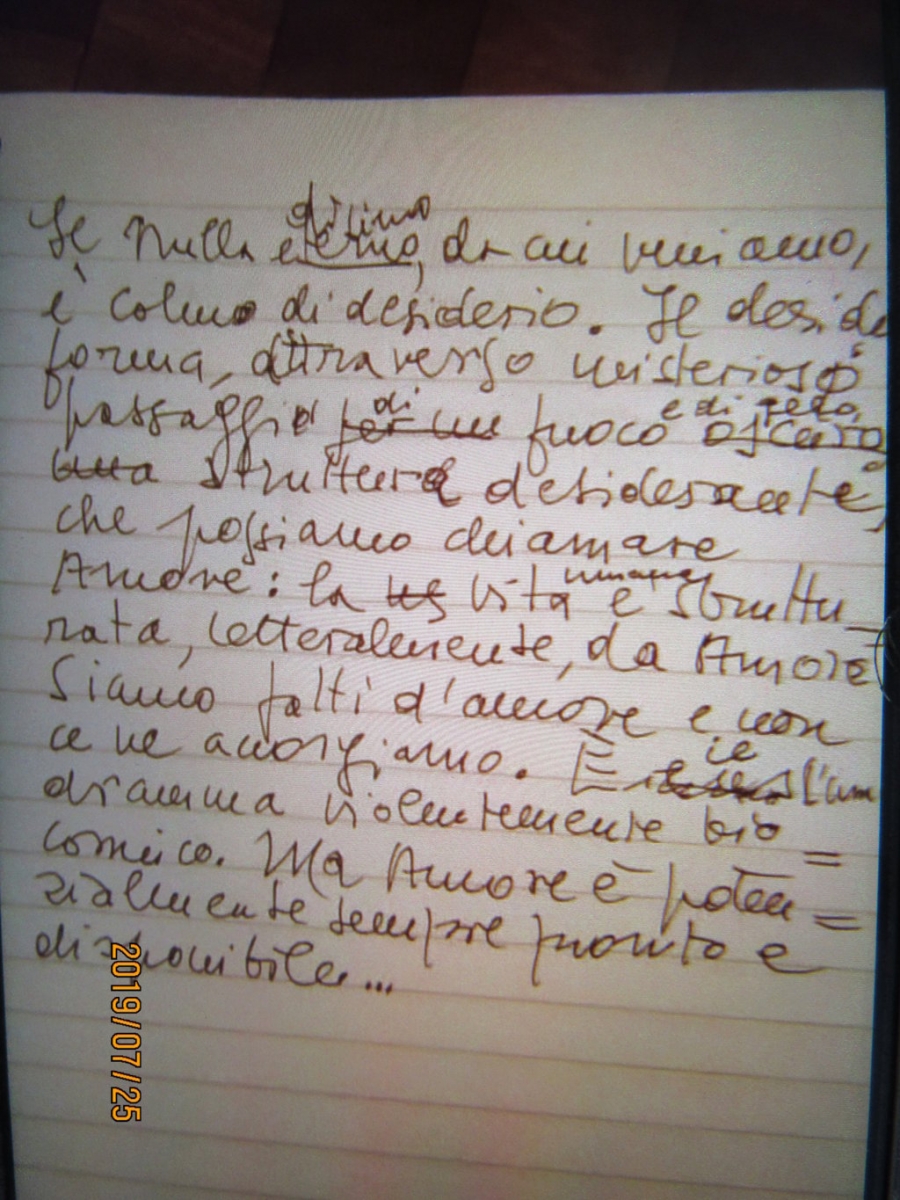 divino
Il Nulla eterno, da cui veniamo,
è colmo di desiderio. Il deside
forma, attraverso misterioso
di e di gelo,
passaggio per un fuoco oscuro
una struttura desiderante,
che possiamo chiamare
umana
Amore: la vita è struttu
rata, letteralmente, da Amore
Siamo fatti d'amore e non
ce ne accorgiamo. È l'um
dramma violentemente bio=
comico. Ma Amore è poten=
zialmente sempre pronto e
disponibile...
2019/07/25